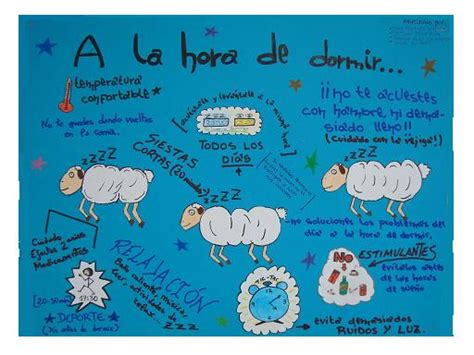 A la hora de dormir...
temperatura
confortable*
No te quedes dando vueltas
en la cama.
[acuéstate y levántate a la misma hora]
TODOS LOS
DÍAS
¡¡no te acuestes
con hambre, ni dema-
siado lleno!!
(Cuidado con la vejiga!!)
SIESTAS
CORTAS (20 minutos)
zzzz
zzzz
zzzz
no soluciones los problemas del
día a la hora de dormir.
Cuidado
Medicamentos
RELAJACIÓN
Baño caliente, música,
leer, actividades de
relax.
zzz
[20-30min]
17:30
DEPORTE
TIC-TAC
No
ESTIMULANTES
evítalos antes
de las horas
de sueño
evita demasiados
RUIDOS Y LUZ.